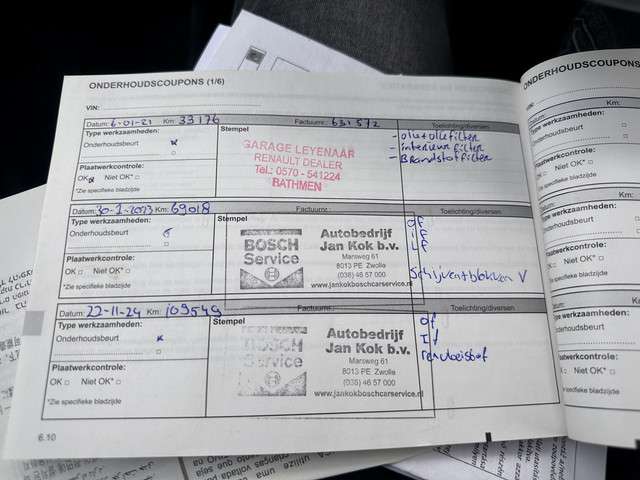 ONDERHOUDSCOUPONS (1/6)
VIN:
Datum: 6-01-21 Km: 33176 Factuurnr.: 631572 Toelichting/diversen
Type werkzaamheden:
Onderhoudsbeurt
Stempel
GARAGE LEYENAAR
RENAULT DEALER
Tel.: 0570 - 541224
BATHMEN
- olie + oliefilter
- interieurfilter
- Brandstoffilter
Plaatwerkcontrole:
OK Niet OK*
*Zie specifieke bladzijde
Datum: 30-1-2023 Km: 69018 Factuurnr.: Toelichting/diversen
Type werkzaamheden:
Onderhoudsbeurt
Stempel
BOSCH
Service
Autobedrijf
Jan Kok b.v.
Marsweg 61
8013 PE Zwolle
(038) 46 57 000
www.jankokboschcarservice.nl
of
if
Lf
Schijven+blokken V
Plaatwerkcontrole:
OK Niet OK*
*Zie specifieke bladzijde
Datum: 22-11-24 Km: 109549 Factuurnr.: Toelichting/diversen
Type werkzaamheden:
Onderhoudsbeurt
Stempel
BOSCH
Service
Autobedrijf
Jan Kok b.v.
Marsweg 61
8013 PE Zwolle
(038) 46 57 000
www.jankokboschcarservice.nl
of
If
remvloeistof
Plaatwerkcontrole:
OK Niet OK*
*Zie specifieke bladzijde
6.10
ONDERHOUDSCOUPONS
VIN:
Datum:
Type werkzaamheden:
Onderhoudsbeurt
Plaatwerkcontrole:
OK Niet OK*
*Zie specifieke bladzijde
Datum:
Type werkzaamheden:
Onderhoudsbeurt
Plaatwerkcontrole:
OK Niet OK*
*Zie specifieke bladzijde
Datum:
Type werkzaamheden:
Onderhoudsbeurt
Plaatwerkcontrole:
OK Niet OK*
*Zie specifieke bladzijde